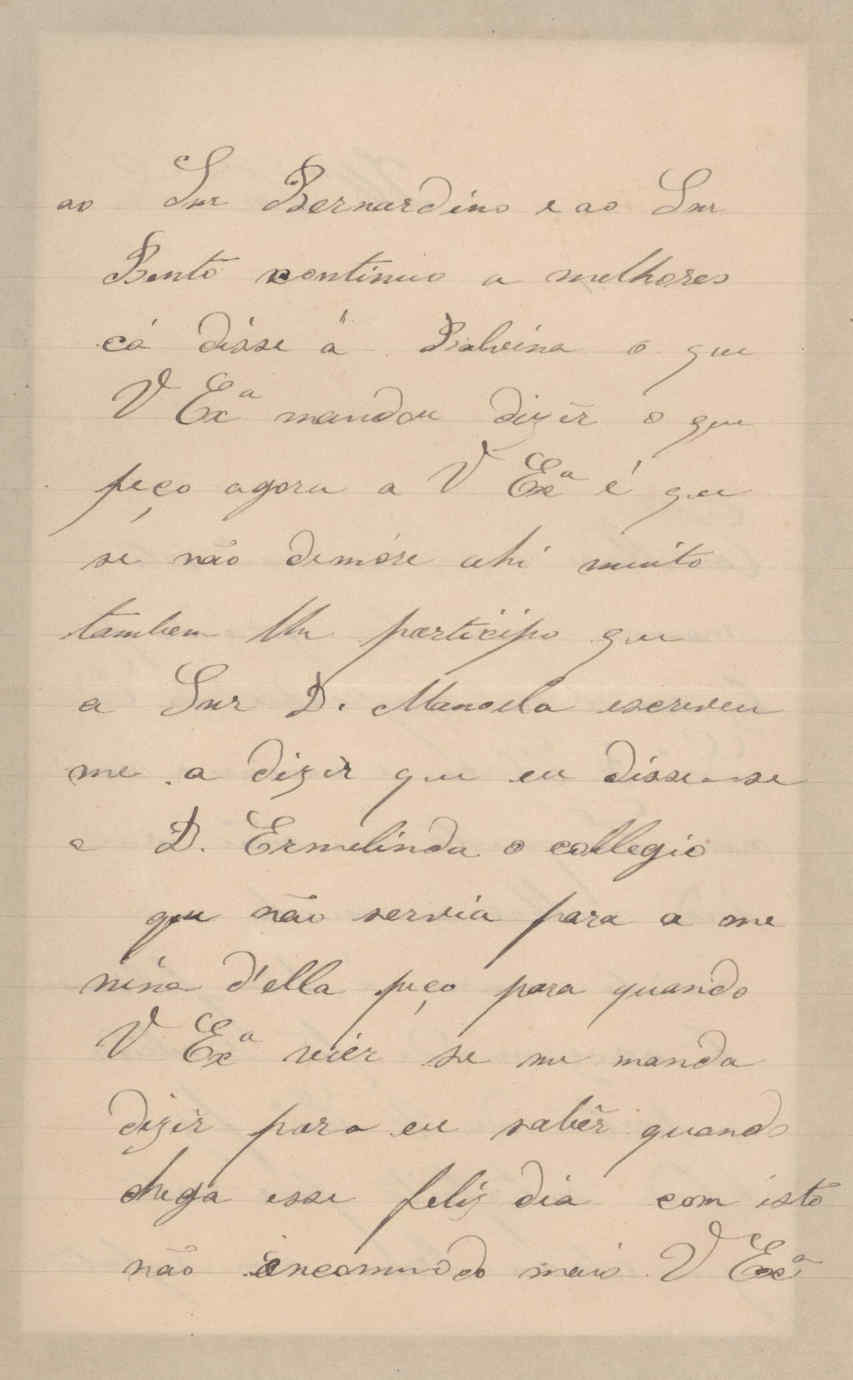 ao Snr Bernardino e ao Snr
Bento continuo a melhores
cá disse á Balvina o que
V Exª mandou dizêr o que
peço agora a V Exª é que
se não demóre ahi muito
tambem lhe participo que
a Snr D. Manoela escreveu
me a dizer que eu disse-se
a D. Ermelinda o collegio
que não servia para a me
nina d'ella peço para quando
V Exª viér se me manda
dizer para eu sabêr quando
chega esse feliz dia com isto
não incomundo mais V Exª